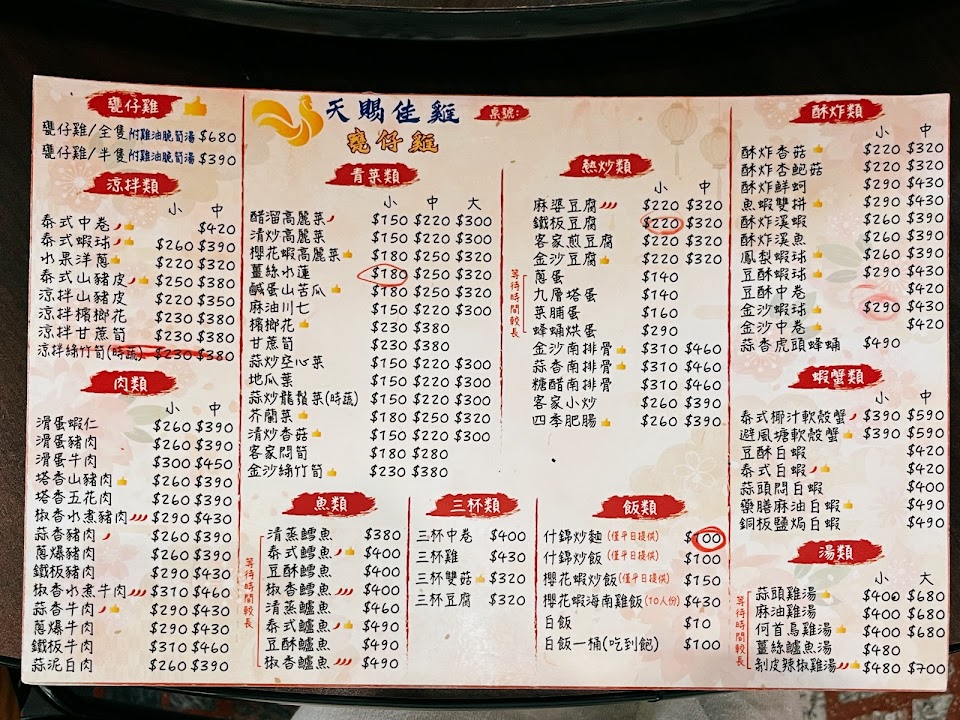 甕仔雞
甕仔雞/全隻附雞油脆筍湯 $680
甕仔雞/半隻附雞油脆筍湯 $390
涼拌類
小 中
泰式中卷 $420
泰式蝦球 $260 $390
水果洋蔥 $220 $320
泰式山豬皮 $250 $380
涼拌山豬皮 $220 $350
涼拌檳榔花 $230 $380
涼拌甘蔗筍 $230 $380
涼拌綿竹筍(時蔬) $230 $380
肉類
小 中
滑蛋蝦仁 $260 $390
滑蛋豬肉 $260 $390
滑蛋牛肉 $300 $450
塔香山豬肉 $260 $390
塔香五花肉 $260 $390
椒香水煮豬肉 $290 $430
蒜香豬肉 $260 $390
蔥爆豬肉 $260 $390
鐵板豬肉 $290 $430
椒香水煮牛肉 $310 $460
蒜香牛肉 $290 $430
蔥爆牛肉 $290 $430
鐵板牛肉 $310 $460
蒜泥白肉 $260 $390
天賜佳雞
甕仔雞
桌號:
青菜類
小 中 大
醋溜高麗菜 $150 $220 $300
清炒高麗菜 $150 $220 $300
櫻花蝦高麗菜 $180 $250 $320
薑絲水蓮 $180 $250 $320
鹹蛋山苦瓜 $180 $250 $320
麻油川七 $150 $220 $300
檳榔花 $230 $380
甘蔗筍 $230 $380
蒜炒空心菜 $150 $220 $300
地瓜葉 $150 $220 $300
蒜炒龍鬚菜(時蔬) $150 $220 $300
芥蘭菜 $180 $250 $320
清炒香菇 $150 $220 $300
客家悶筍 $180 $280
金沙綿竹筍 $230 $380
熱炒類
小 中
麻婆豆腐 $220 $320
鐵板豆腐 $220 $320
客家煎豆腐 $220 $320
金沙豆腐 $220 $320
等待時間較長
蔥蛋 $140
九層塔蛋 $140
菜脯蛋 $160
蜂蛹烘蛋 $290
金沙南排骨 $310 $460
蒜香南排骨 $310 $460
糖醋南排骨 $310 $460
客家小炒 $260 $390
四季肥腸 $260 $390
魚類
等待時間較長
清蒸鱈魚 $380
泰式鱈魚 $400
豆酥鱈魚 $400
椒香鱈魚 $400
清蒸鱸魚 $460
泰式鱸魚 $490
豆酥鱸魚 $490
椒香鱸魚 $490
三杯類
三杯中卷 $400
三杯雞 $430
三杯雙菇 $320
三杯豆腐 $320
飯類
什錦炒麵(僅平日提供) $100
什錦炒飯(僅平日提供) $100
櫻花蝦炒飯(僅平日提供) $150
櫻花蝦海南雞飯(10人份) $430
白飯 $10
白飯一桶(吃到飽) $100
酥炸類
小 中
酥炸香菇 $220 $320
酥炸杏鮑菇 $220 $320
酥炸鮮蚵 $290 $430
魚蝦雙拼 $290 $430
酥炸溪蝦 $260 $390
酥炸溪魚 $260 $390
鳳梨蝦球 $260 $390
豆酥蝦球 $290 $430
豆酥中卷 $420
金沙蝦球 $290 $430
金沙中卷 $420
蒜香虎頭蜂蛹 $490
蝦蟹類
小 中
泰式椰汁軟殼蟹 $390 $590
避風塘軟殼蟹 $390 $590
豆酥白蝦 $420
泰式白蝦 $420
蒜頭悶白蝦 $400
藥膳麻油白蝦 $490
銅板鹽焗白蝦 $490
湯類
小 大
等待時間較長
蒜頭雞湯 $400 $680
麻油雞湯 $400 $680
何首烏雞湯 $400 $680
薑絲鱸魚湯 $480
剝皮辣椒雞湯 $480 $700